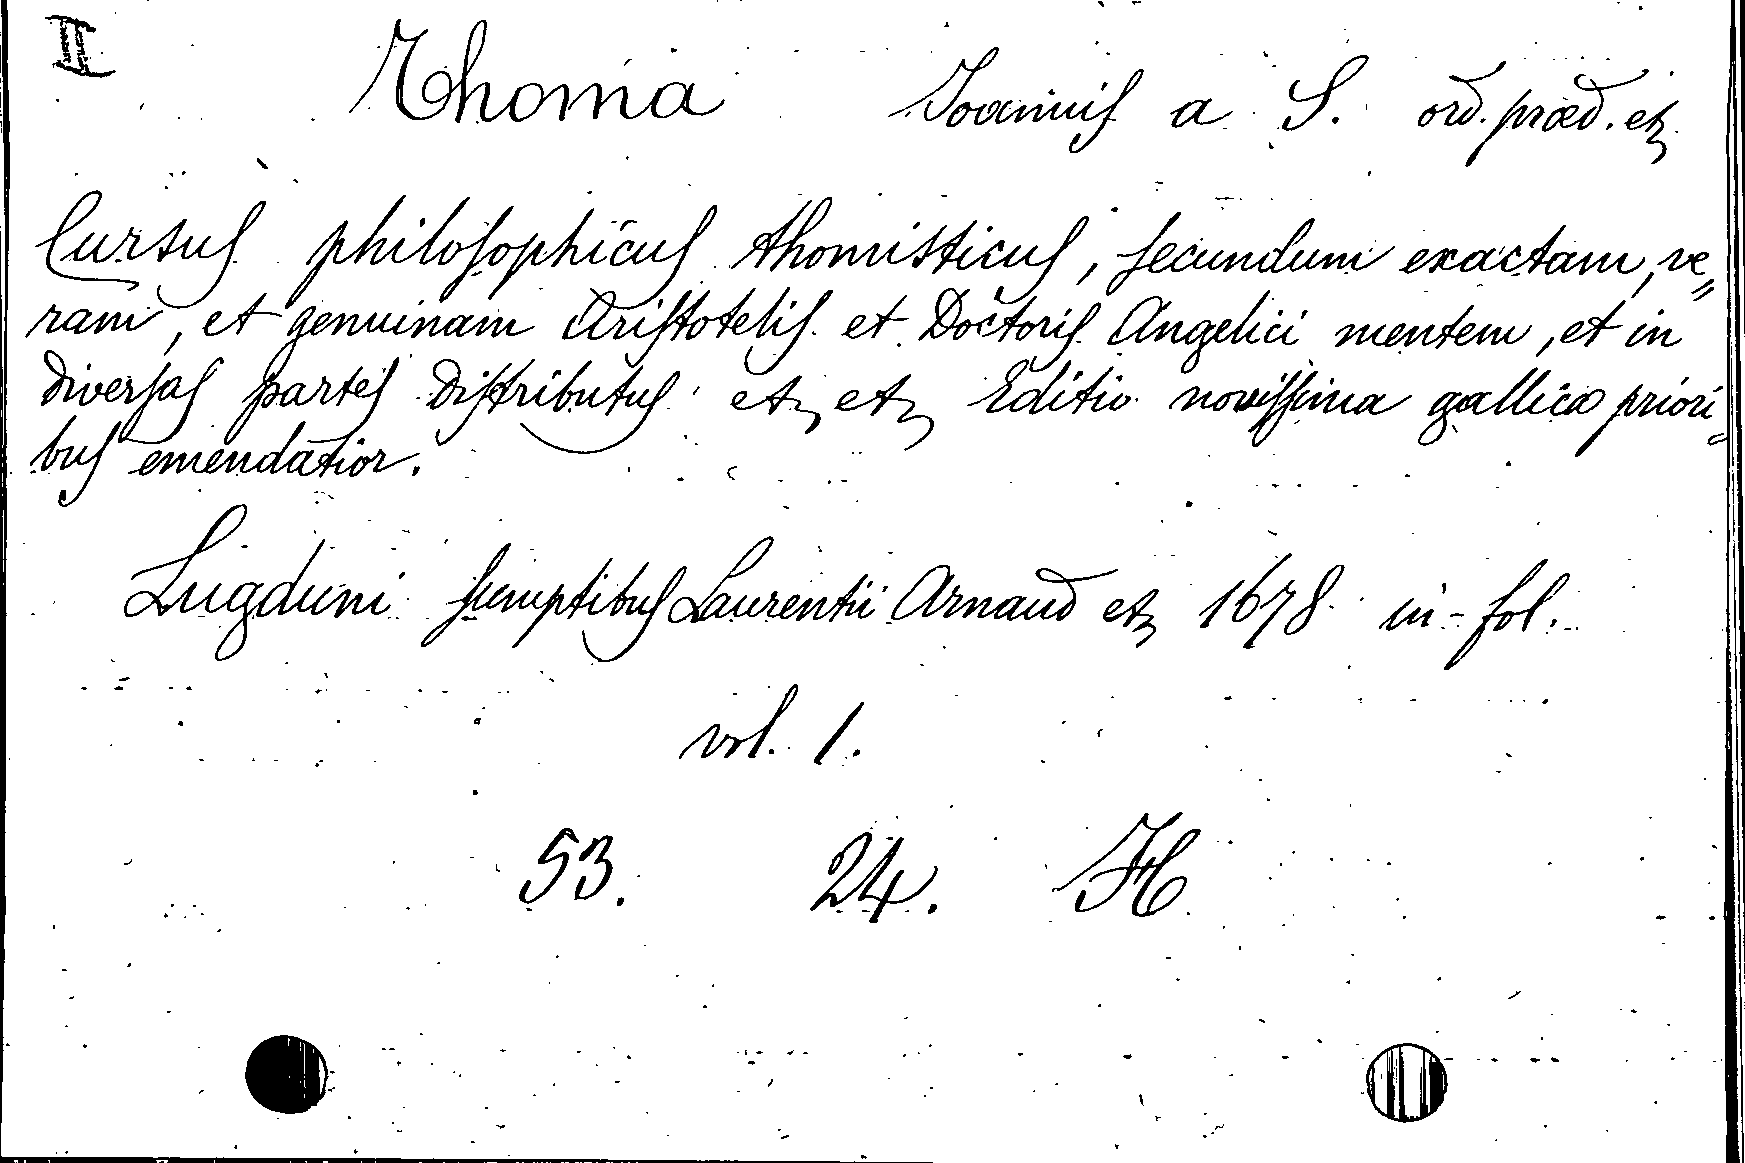 II
Thoma Joannis a S. ord. præd. etc
Cursus philosophicus thomisticus, secundum exactam, ve„
ram, et genuinam Aristotelis et Doctoris Angelici mentem, et in
diversas partes distributus etc etc Editio novissima gallicæ priori„
bus emendatior.
Lugduni sumptibus Laurentii Arnaud etc 1678 in-fol.
vol. 1.
53. 24. H